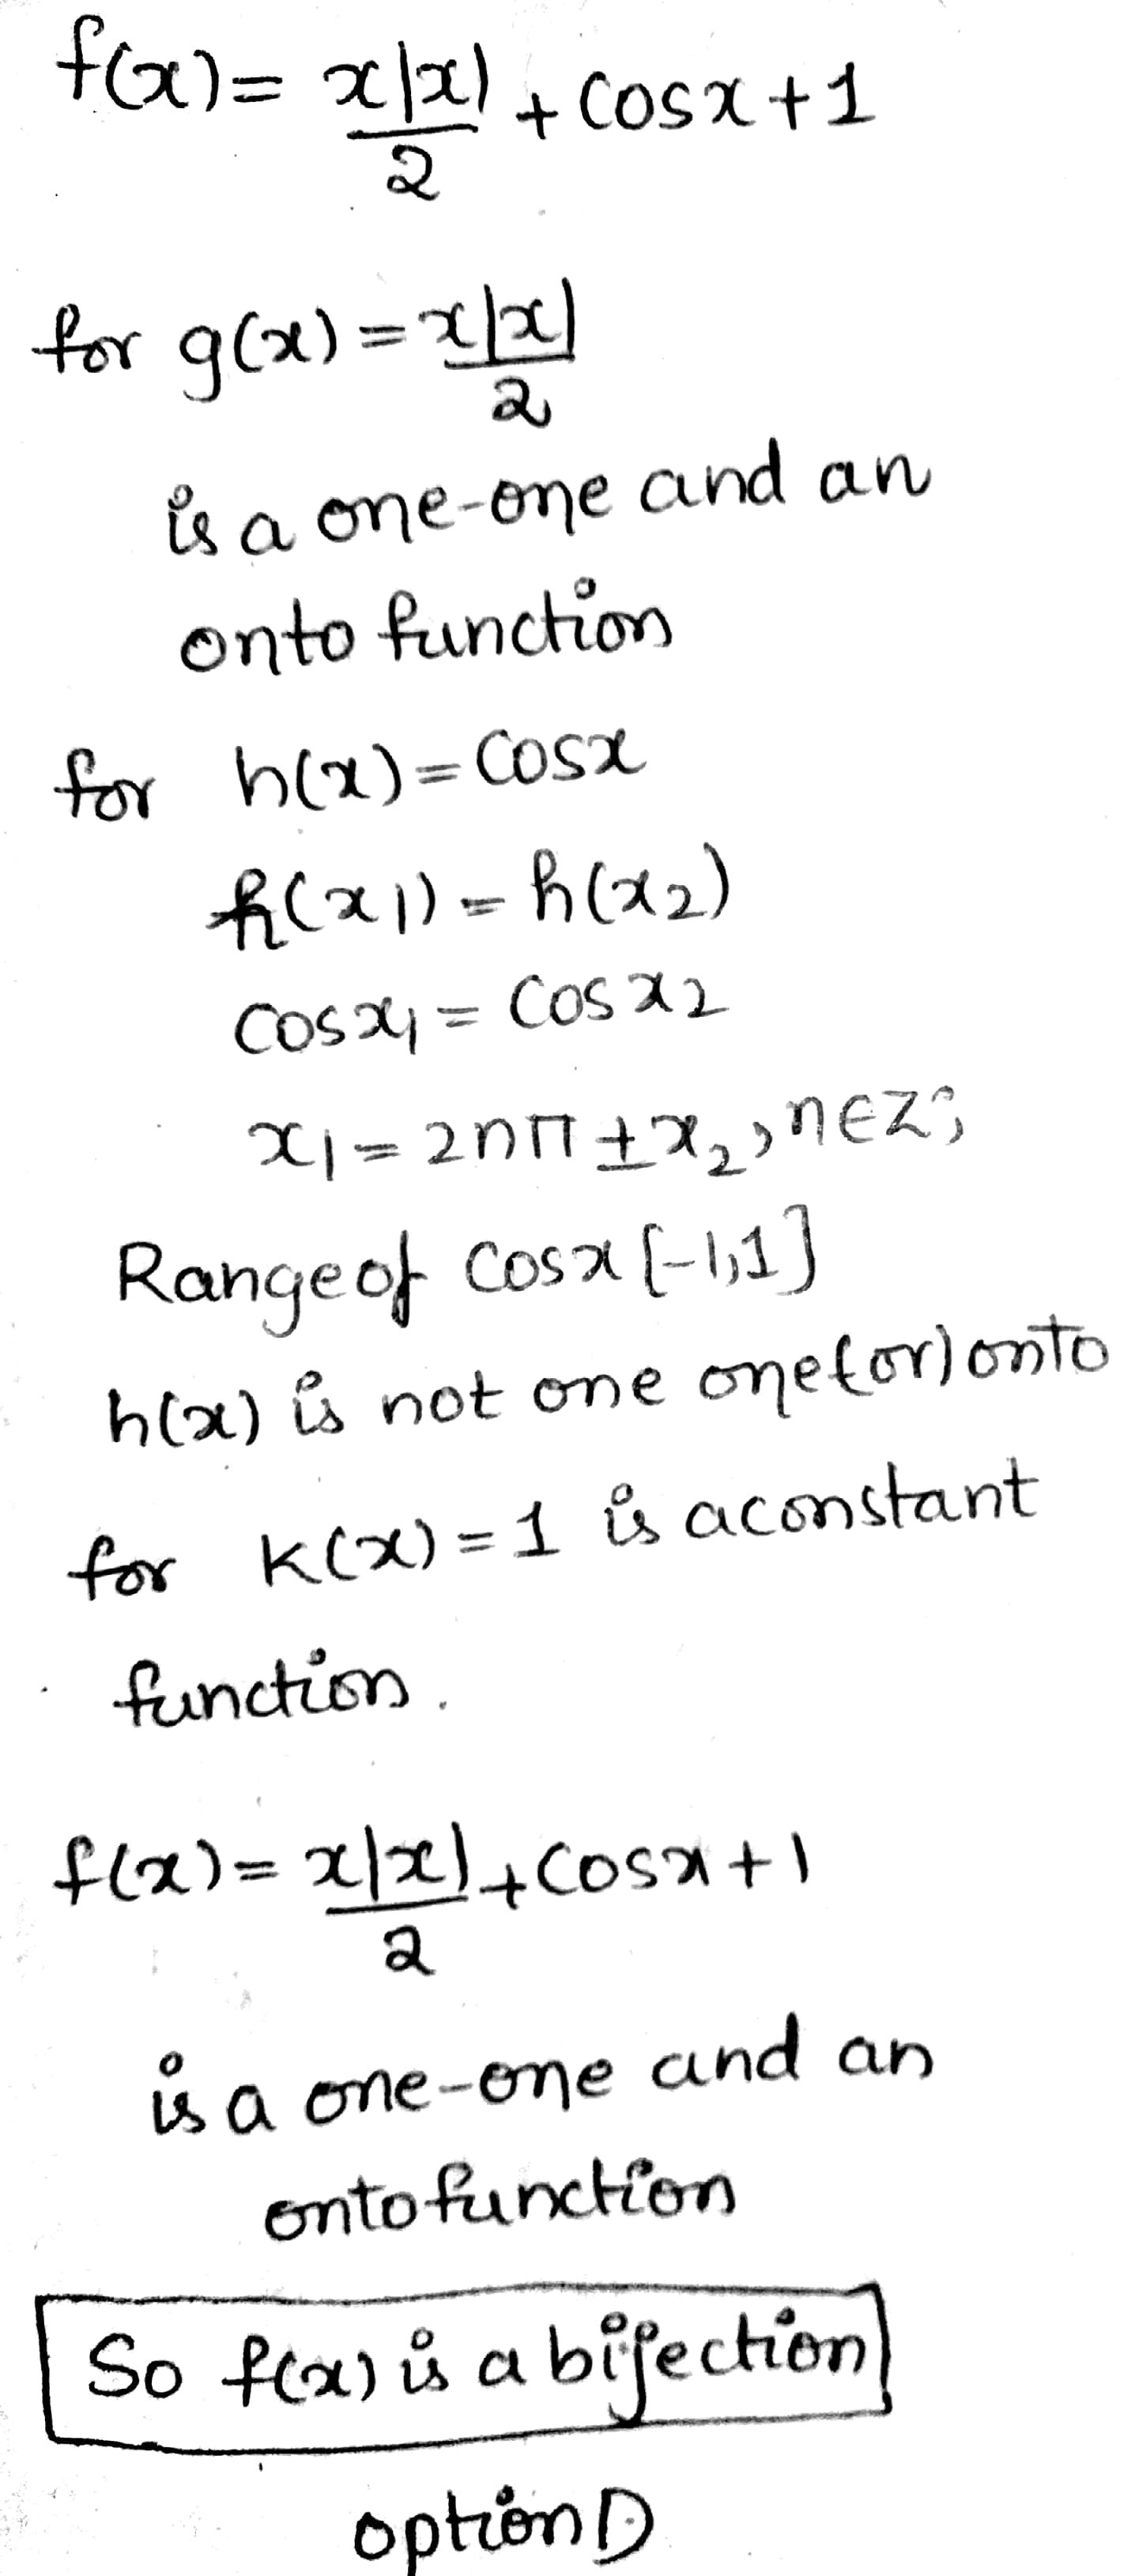 f(x) = x|x|/2 + cosx + 1
for g(x) = x|x|/2
is a one-one and an
onto function
for h(x) = cosx
h(x1) = h(x2)
cosx1 = cosx2
x1 = 2nπ ± x2, n∈Z;
Range of cosx [-1,1]
h(x) is not one one (or) onto
for k(x) = 1 is a constant
function.
f(x) = x|x|/2 + cosx + 1
is a one-one and an
onto function
So f(x) is a bijection
option D